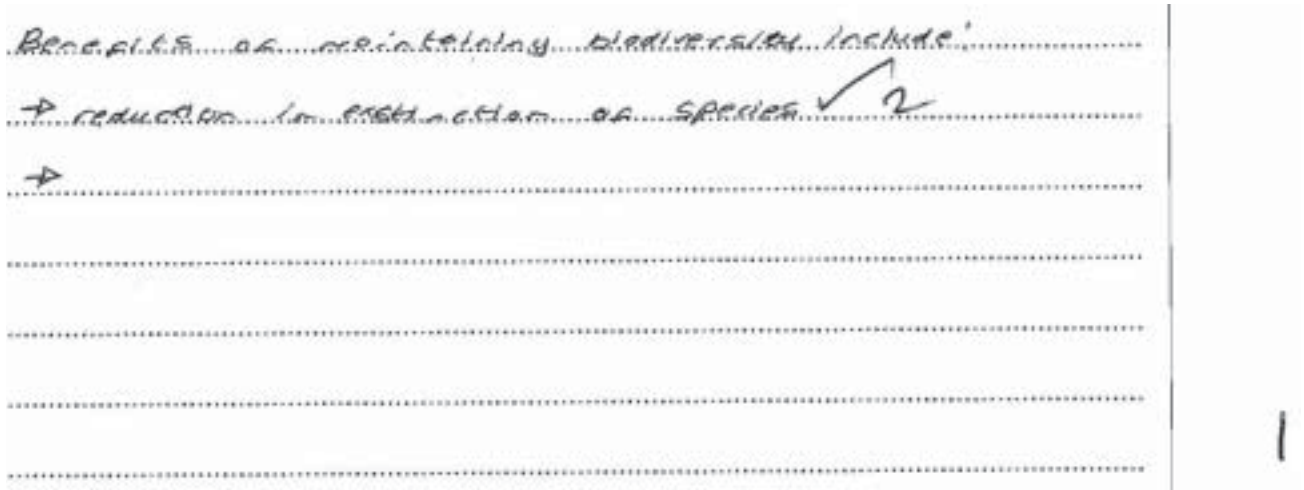 Benefits of maintaining biodiversity include:
→ reduction in exstinction of species ✓ 2
→
1